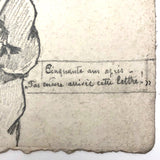 Cinquante ans après -
"Pas encore arrivée cette lettre - ! »